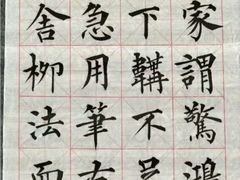 家謂驚鴻
下韝不
急用筆
舍柳法而